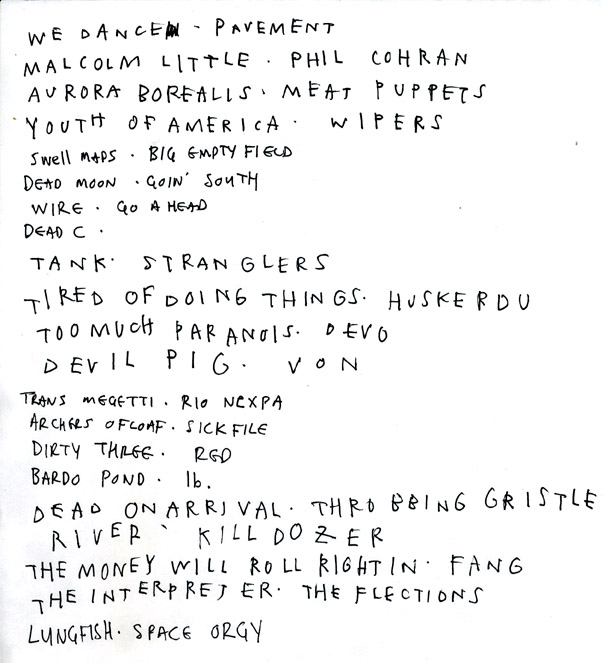 WE DANCE · PAVEMENT
MALCOLM LITTLE · PHIL COHRAN
AURORA BOREALIS · MEAT PUPPETS
YOUTH OF AMERICA · WIPERS
SWell MAPS · BIG EMPTY FIELD
DEAD MOON · GOIN' SOUTH
WIRE · GO AHEAD
DEAD C ·
TANK · STRANGLERS
TIRED OF DOING THINGS · HUSKER DU
TOO MUCH PARANOIS · DEVO
DEVIL PIG · VON
TRANS MEGETTI · RIO NEXPA
ARCHERS OF LOAF · SICK FILE
DIRTY THREE · RED
BARDO POND · lb.
DEAD ON ARRIVAL · THROBBING GRISTLE
RIVER · KILLDOZER
THE MONEY WILL ROLL RIGHT IN · FANG
THE INTERPRETER · THE FLECTIONS
LUNGFISH · SPACE ORGY